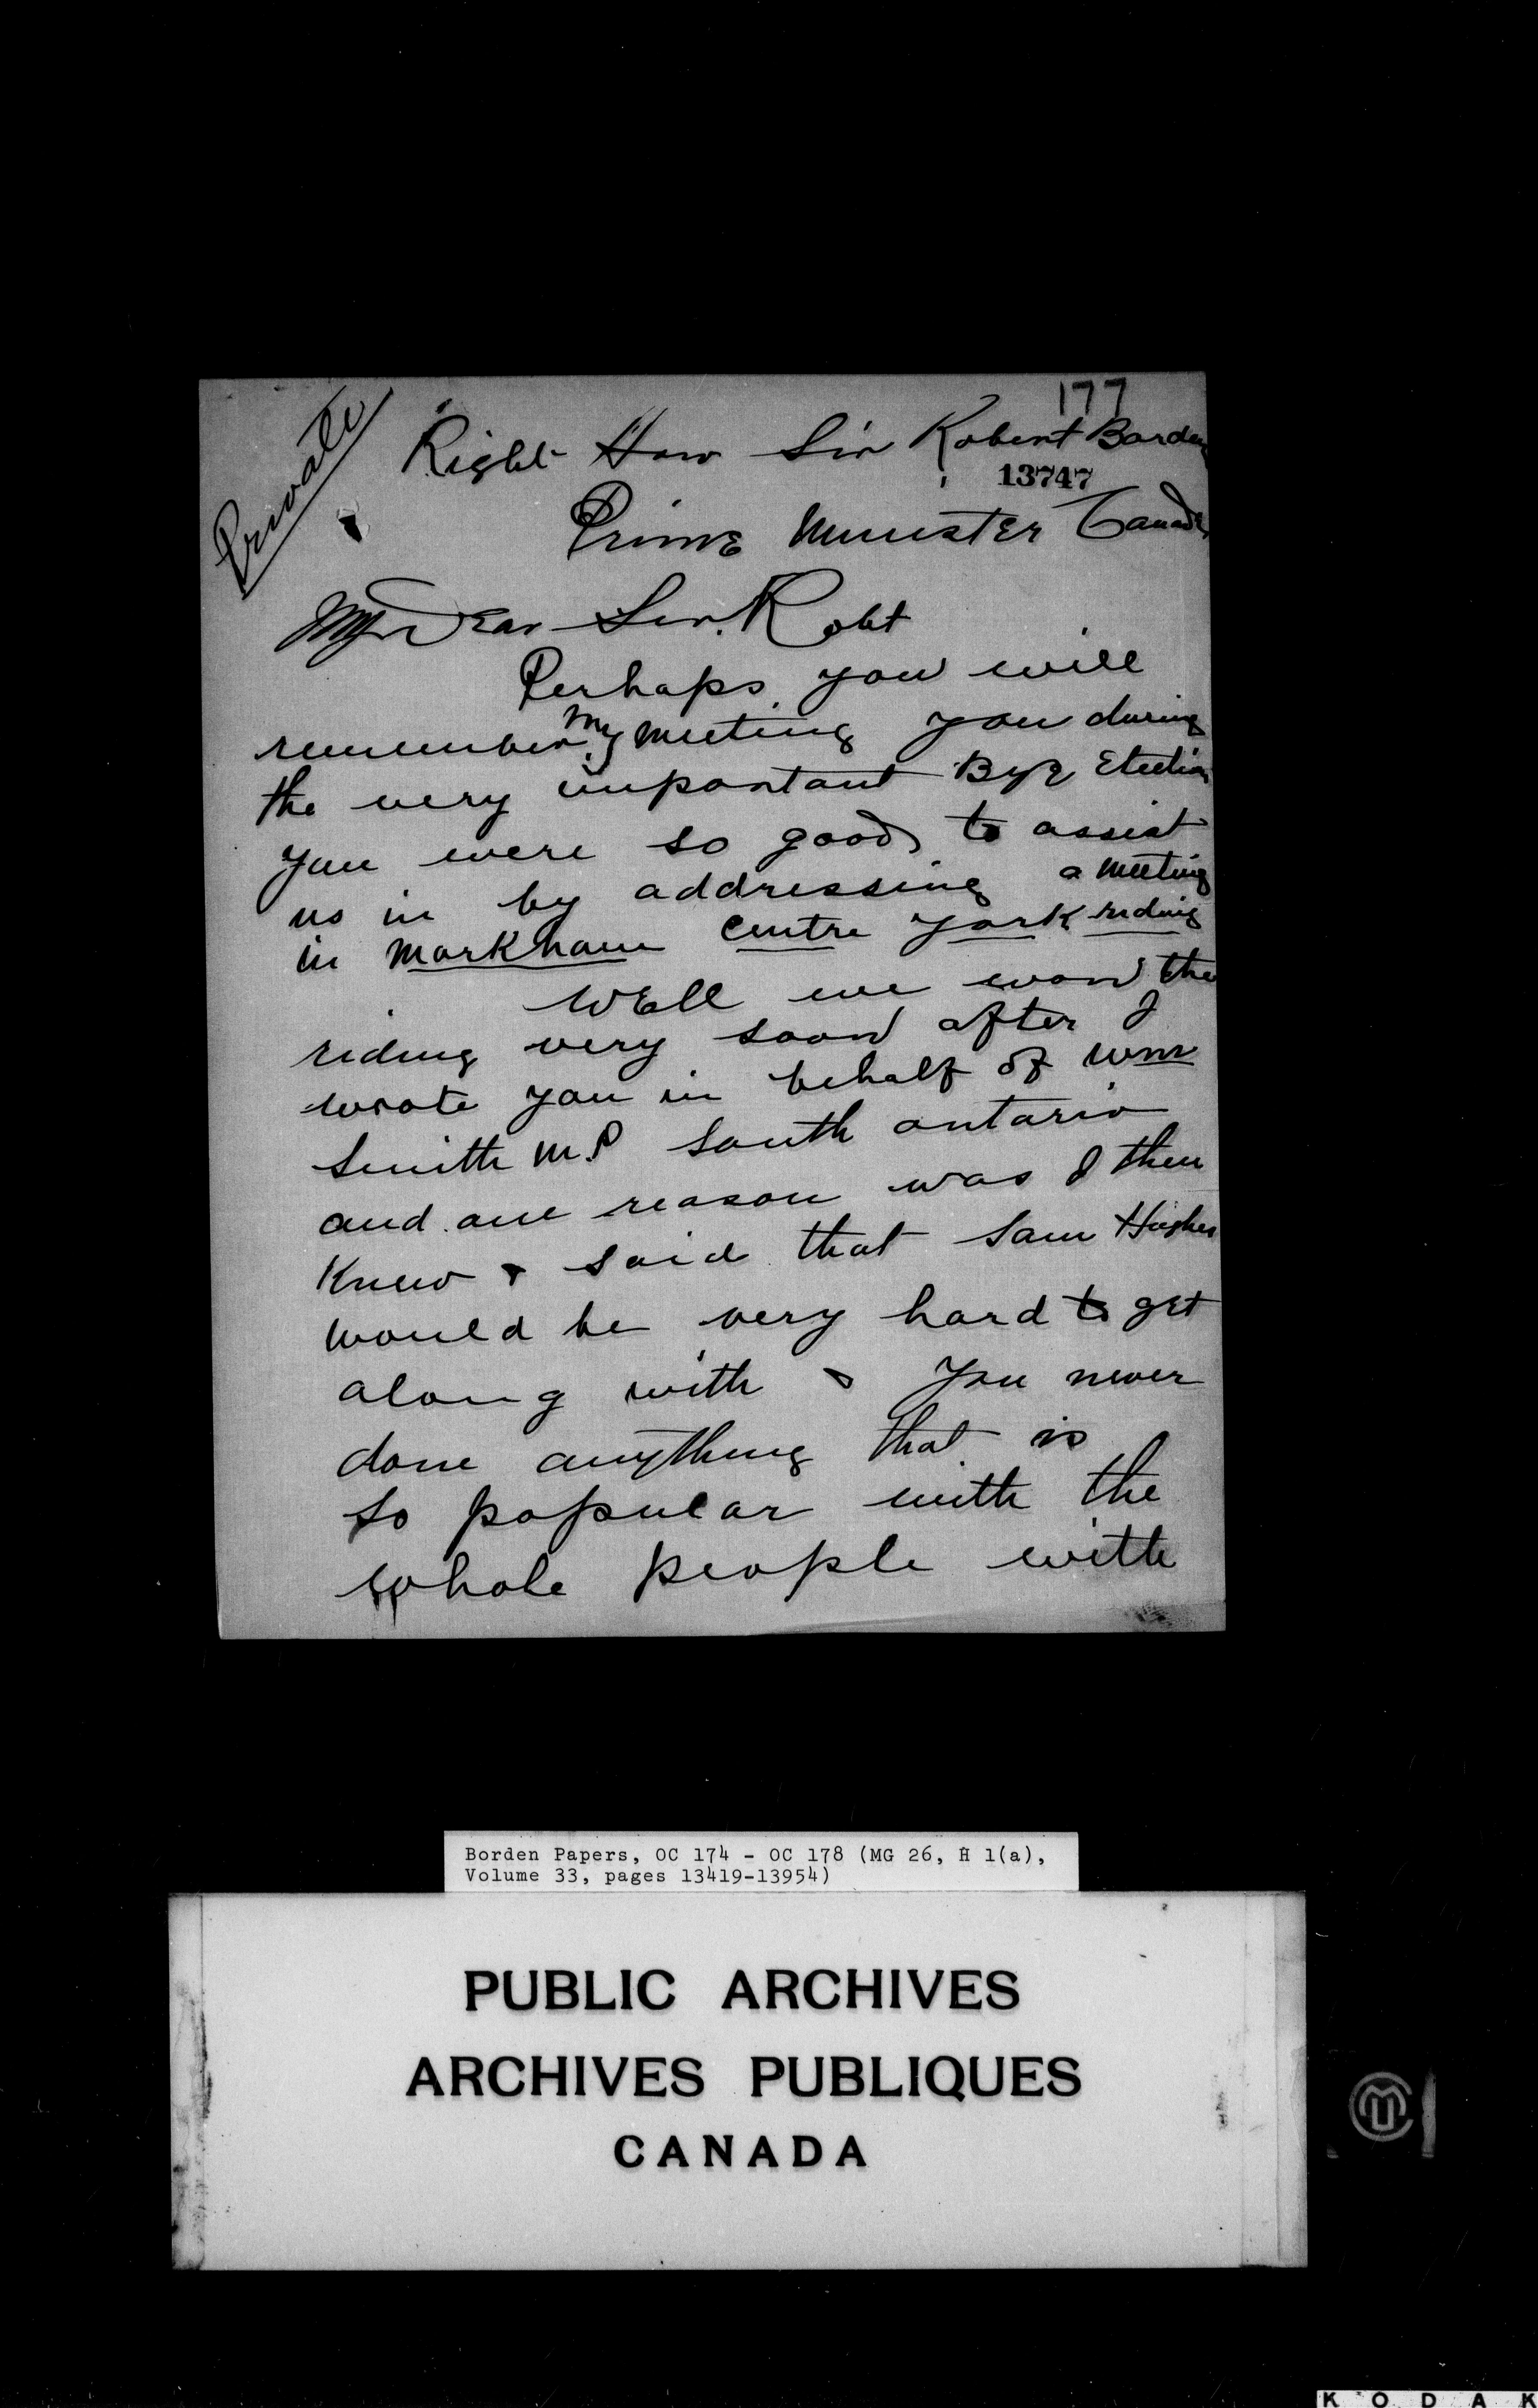 177
Private
Right Hon Sir Robert Borden
13747
Prime Minister Canada
My Dear Sir Robt
Perhaps you will
remember my meeting you during
the very important Bye Election
you were so good to assist
us in by addressing a meeting
in Markham Centre York riding
Well we won the
riding very soon after I
wrote you in behalf of Wm
Smith M.P South Ontario
and one reason was I then
Knew & said that Sam Hughes
would be very hard to get
along with & you never
done anything that is
so popular with the
whole people with
Borden Papers, OC 174 - OC 178 (MG 26, H 1(a),
Volume 33, pages 13419-13954)
PUBLIC ARCHIVES
ARCHIVES PUBLIQUES
CANADA
KODAK